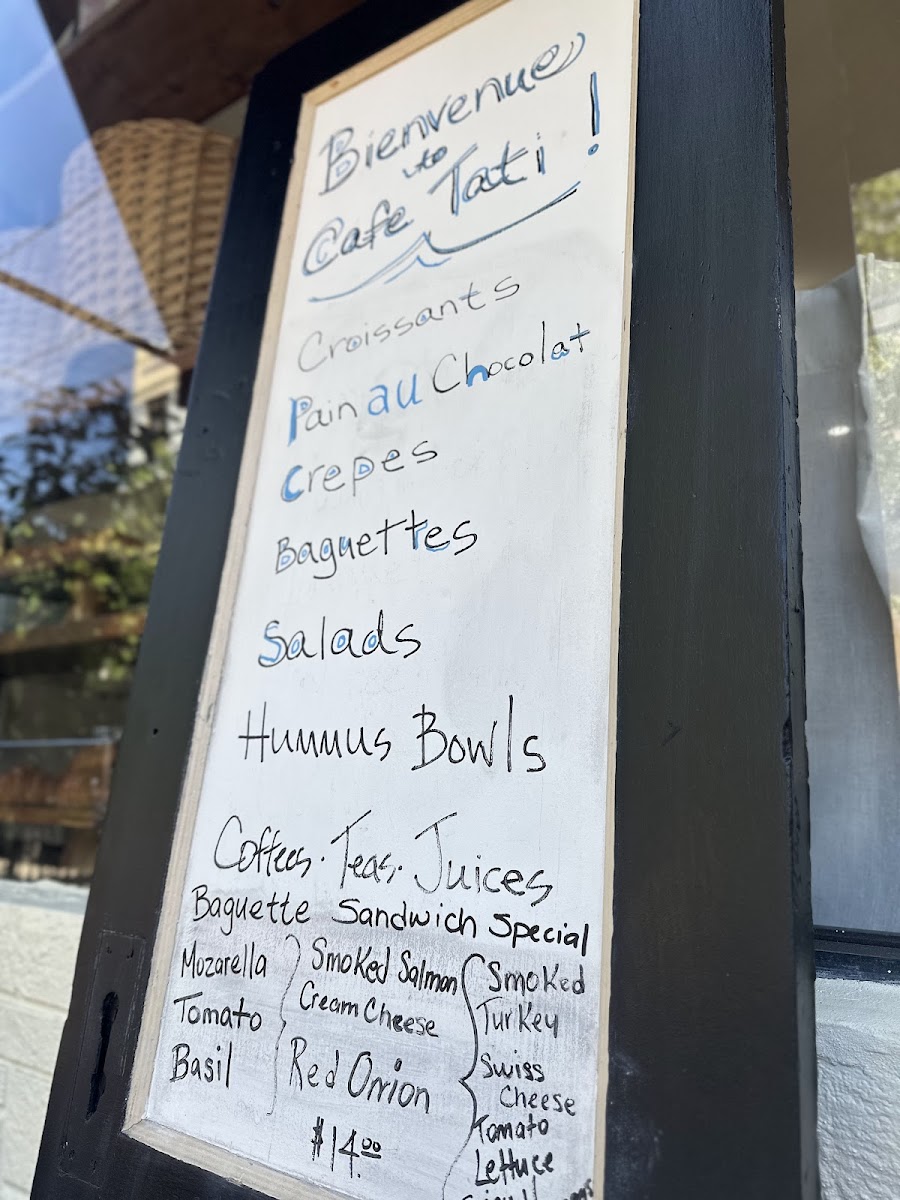 Bienvenue
to
Cafe Tati!
Croissants
Pain au Chocolat
Crepes
Baguettes
Salads
Hummus Bowls
Coffees. Teas. Juices
Baguette Sandwich Special
Mozarella
Tomato
Basil
Smoked Salmon
Cream Cheese
Red Onion
$14.00
Smoked
Turkey
Swiss
Cheese
Tomato
Lettuce